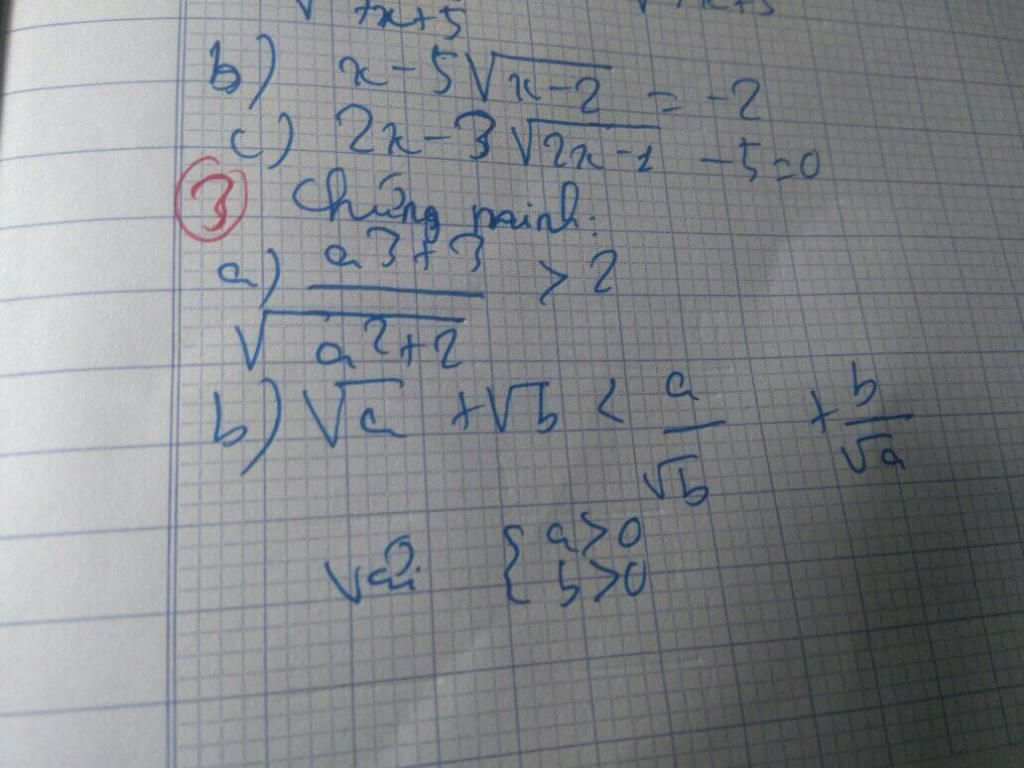 7x+5
b) x - 5√(x-2) = -2
c) 2x - 3√(2x-1) - 5 = 0
3 Chứng minh:
a) (a3+3)/√(a2+2) > 2
b) √a + √b < a/√b + b/√a
Với { a>0
b>0